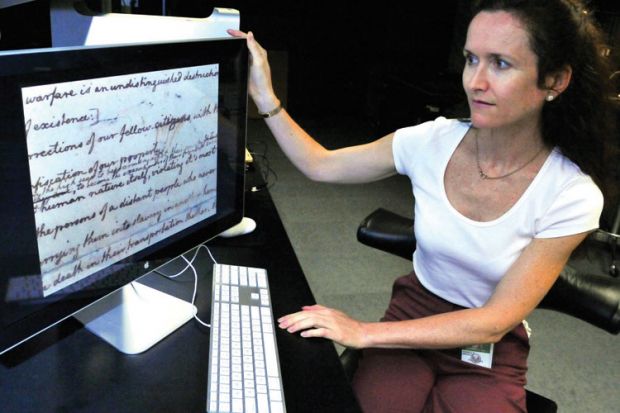 warfare is an undistinguished destruction
f existence:]
rrections of our fellow citizens, with th
fiscation of our property
human nature itself, violating it's most
the persons of a distant people who never
rrying them into slavery in
e death in their transportation thither.